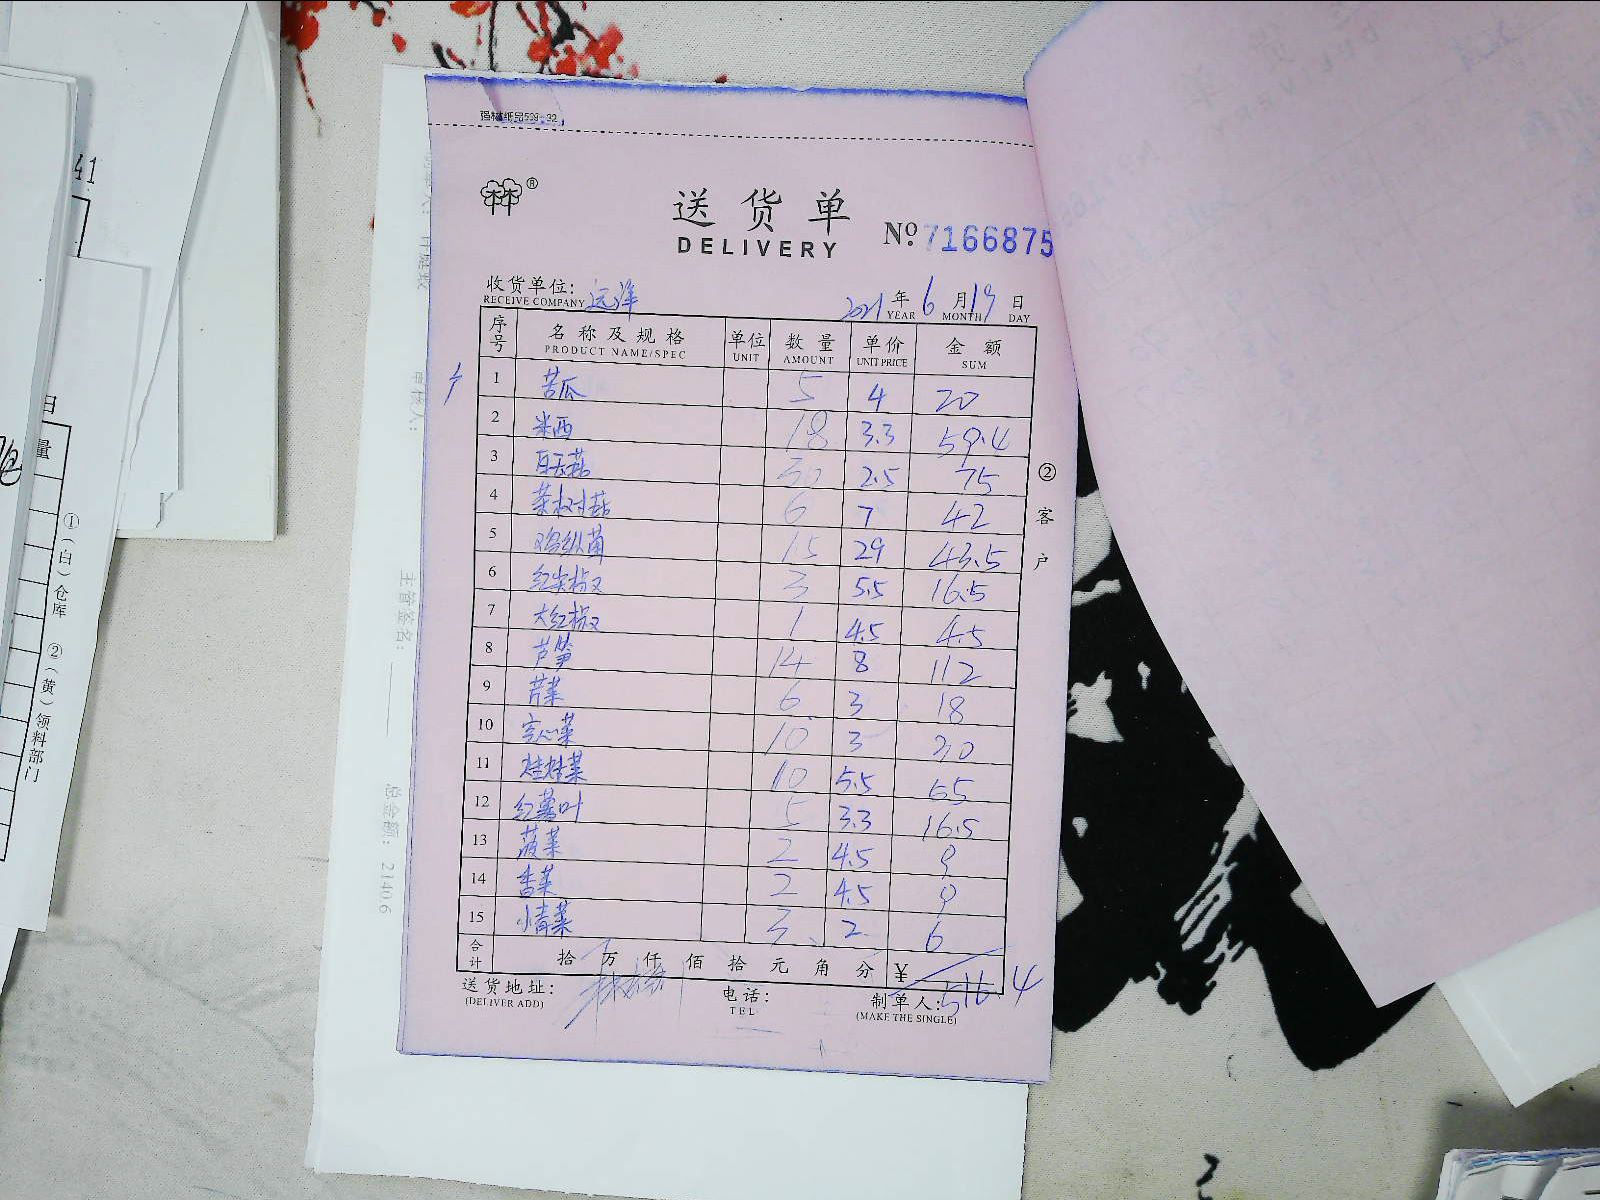 强林纸品539-32
®
送货单
DELIVERY
№ 7166875
收货单位: 远洋
RECEIVE COMPANY
2021 年 6 月 19 日
YEAR MONTH DAY
序号 名称及规格 单位 数量 单价 金额
PRODUCT NAME/SPEC UNIT AMOUNT UNIT PRICE SUM
1 苦瓜 5 4 20
2 米西 18 3.3 59.4
3 白玉菇 30 2.5 75
4 茶树菇 6 7 42
5 鸡纵菌 15 29 43.5
6 红尖椒 3 5.5 16.5
7 大红椒 1 4.5 4.5
8 芦笋 14 8 112
9 芹菜 6 3 18
10 空心菜 10 3 30
11 娃娃菜 10 5.5 55
12 红薯叶 5 3.3 16.5
13 菠菜 2 4.5 9
14 香菜 2 4.5 9
15 小青菜 3 2 6
合计 拾 万 仟 佰 拾 元 角 分 ¥ 516.4
送货地址: 电话: 制单人:
(DELIVER ADD) TEL (MAKE THE SINGLE)
②客户
41
日
量
①(白)仓库 ②(黄)领料部门
主管签名:
总金额: 2140.6